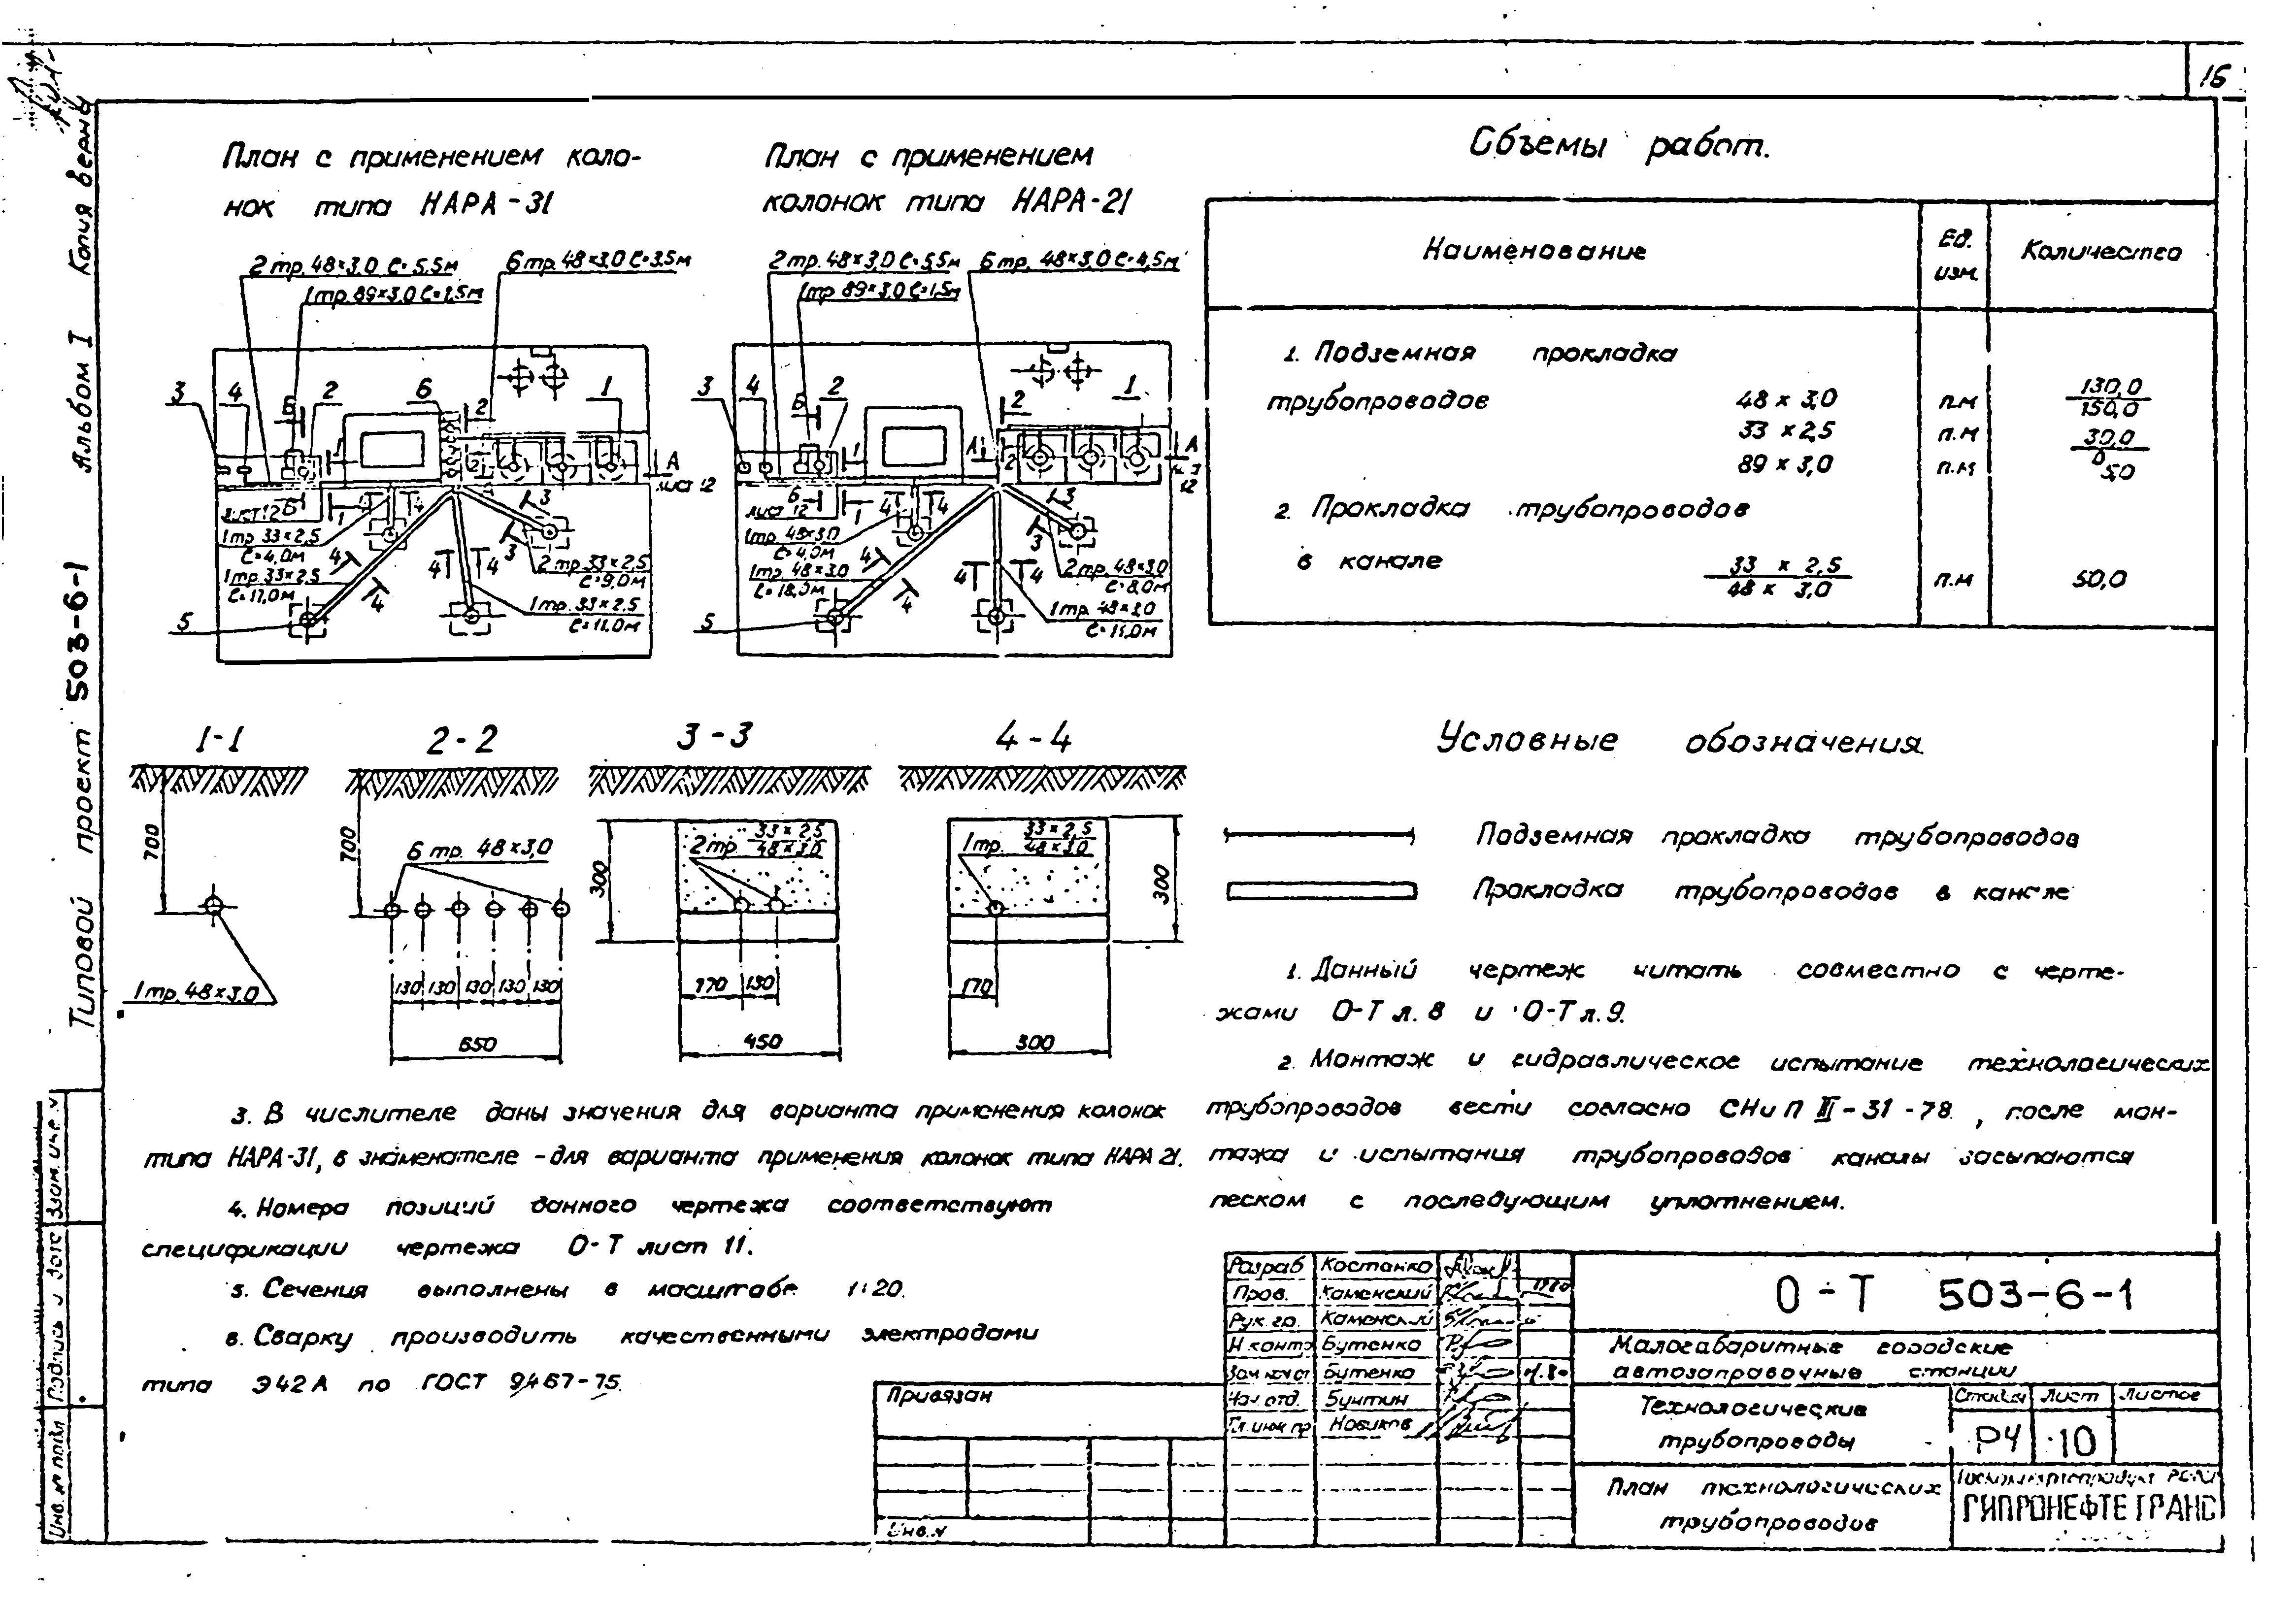 16
Копия верна
Альбом I
Типовой проект 503-6-1
План с применением коло-
нок типа НАРА-31
2 тр. 48×3,0 ℓ=5,5м
6 тр. 48×3,0 ℓ=3,5м
3
4
Б
2
6
2
1
1
2
А
лист 12
лист 12
Б
1
4
4
3
3
1 тр 33×2,5
ℓ=4,0м
1 тр. 33×2,5
ℓ=17,0м
4
4
4
4
2 тр 33×2,5
ℓ=9,0м
1 тр. 33×2,5
ℓ=11,0м
5
План с применением
колонок типа НАРА-21
2 тр. 48×3,0 ℓ=5,5м
6 тр. 48×3,0 ℓ=4,5м
1 тр. 89×3,0 ℓ=1,5м
3
4
Б
2
2
1
1
А
2
А
12
Б
лист 12
1
4
4
3
3
1 тр 48×3,0
ℓ=4,0м
1 тр. 48×3,0
ℓ=18,0м
4
4
4
4
2 тр. 48×3,0
ℓ=8,0м
1 тр. 48×3,0
ℓ=11,0м
5
Объемы работ.
Наименование
Ед.
изм.
Количество
1. Подземная прокладка
трубопроводов 48 × 3,0 п.м 130,0
150,0
33 × 2,5 п.м 30,0
0
89 × 3,0 п.м 5,0
2. Прокладка трубопроводов
в канале 33 × 2,5
48 × 3,0 п.м 50,0
1-1
700
1 тр. 48×3,0
2-2
700
6 тр. 48×3,0
130 130 130 130 130
650
3-3
300
2 тр 33×2,5
48×3,0
170 130
450
4-4
1 тр. 33×2,5
48×3,0
300
170
300
Условные обозначения
Подземная прокладка трубопроводов
Прокладка трубопроводов в канале
1. Данный чертеж читать совместно с черте-
жами О-Т л. 8 и О-Т л. 9.
2. Монтаж и гидравлическое испытание технологических
трубопроводов вести согласно СНиП III-31-78, после мон-
тажа и испытания трубопроводов каналы засыпаются
песком с последующим уплотнением.
3. В числителе даны значения для варианта применения колонок
типа НАРА-31, в знаменателе - для варианта применения колонок типа НАРА 21.
4. Номера позиций данного чертежа соответствуют
спецификации чертежа О-Т лист 11.
5. Сечения выполнены в масштабе 1:20.
6. Сварку производить качественными электродами
типа Э42А по ГОСТ 9467-75.
Привязан
Инв.N
Разраб Костанко
Пров. Каменский 1980
Рук. гр. Каменский
Н контр Бутенко
Бутенко
Нач. отд. Бунтин
Гл. инж. пр Новиков
О-Т 503-6-1
Малогабаритные городские
автозаправочные станции
Технологические
трубопроводы
Стадия Лист Листов
РЧ 10
План технологических
трубопроводов
ГИПРОНЕФТЕТРАНС
Взам. инв. N
Подпись и дата
Инв. № подл